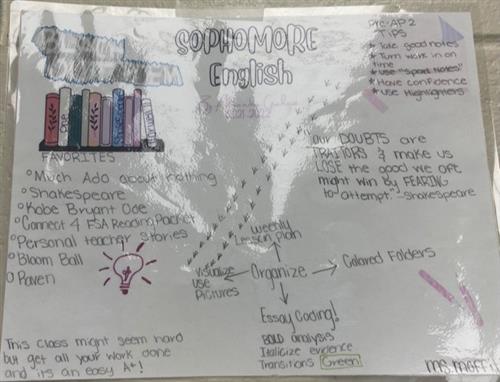 SOPHOMORE
English
2021-2022
Pre-AP 2
TIPS
* Take good notes
* Turn work in on
time
* Use "Sport Notes"
* Have confidence
* Use Highlighters
FAVORITES
Much Ado about nothing
Shakespeare
Kobe Bryant Ode
Connect 4 FSA Reading Packet
Personal teacher stories
Bloom Ball
Raven
"Our DOUBTS are
TRAITORS & make us
LOSE the good we oft
might win by FEARING
to attempt." -Shakespeare
Weekly
Lesson plan
Visualize
Use
Pictures
Organize
Colored Folders
Essay Coding!
BOLD analysis
Italicize evidence
Transitions Green
This class might seem hard
but get all your work done
and its an easy A+!